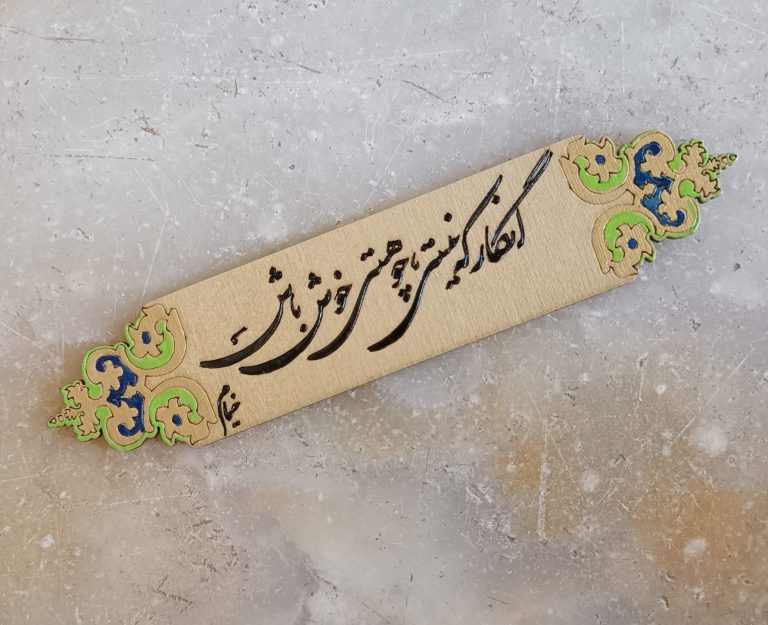 انگار که نیستی، چو هستی خوش باش
خیام